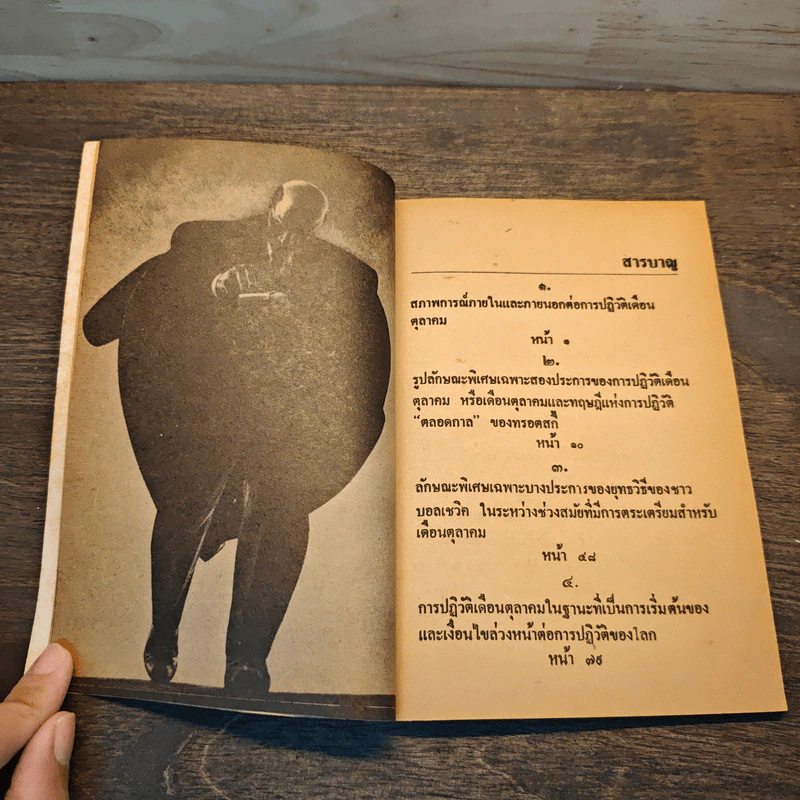 สารบาญ
๑.
สภาพการณ์ภายในและภายนอกต่อการปฏิวัติเดือน
ตุลาคม
หน้า ๑
๒.
รูปลักษณะพิเศษเฉพาะสองประการของการปฏิวัติเดือน
ตุลาคม หรือเดือนตุลาคมและทฤษฎีแห่งการปฏิวัติ
“ตลอดกาล” ของทรอตสกี้
หน้า ๑๐
๓.
ลักษณะพิเศษเฉพาะบางประการของยุทธวิธีของชาว
บอลเชวิค ในระหว่างช่วงสมัยที่มีการตระเตรียมสำหรับ
เดือนตุลาคม
หน้า ๔๘
๔.
การปฏิวัติเดือนตุลาคมในฐานะที่เป็นการเริ่มต้นของ
และเงื่อนไขล่วงหน้าต่อการปฏิวัติของโลก
หน้า ๗๙